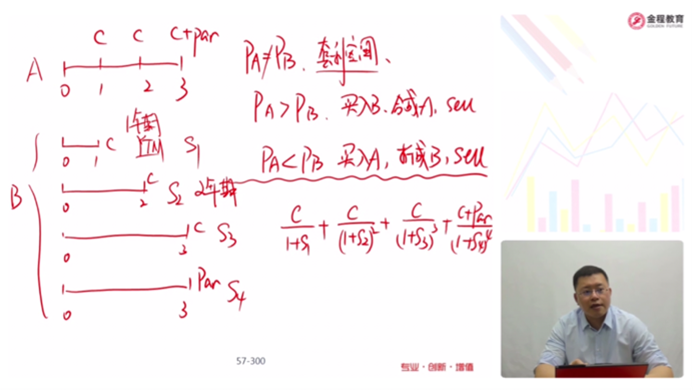 金程教育
GOLDEN FUTURE
C C C+Par
A
0 1 2 3
PA≠PB. 套利空间、
PA>PB. 买入B、合成A, sell
PA<PB 买入A, 拆成B, sell
1年期
YTM
0 1 C S1
B
0 2 C S2 2年期
0 3 C S3
0 3 Par S4
C/(1+S1) + C/(1+S2)^2 + C/(1+S3)^3 + (C+Par)/(1+S4)^4
57-300
专业·创新·增值